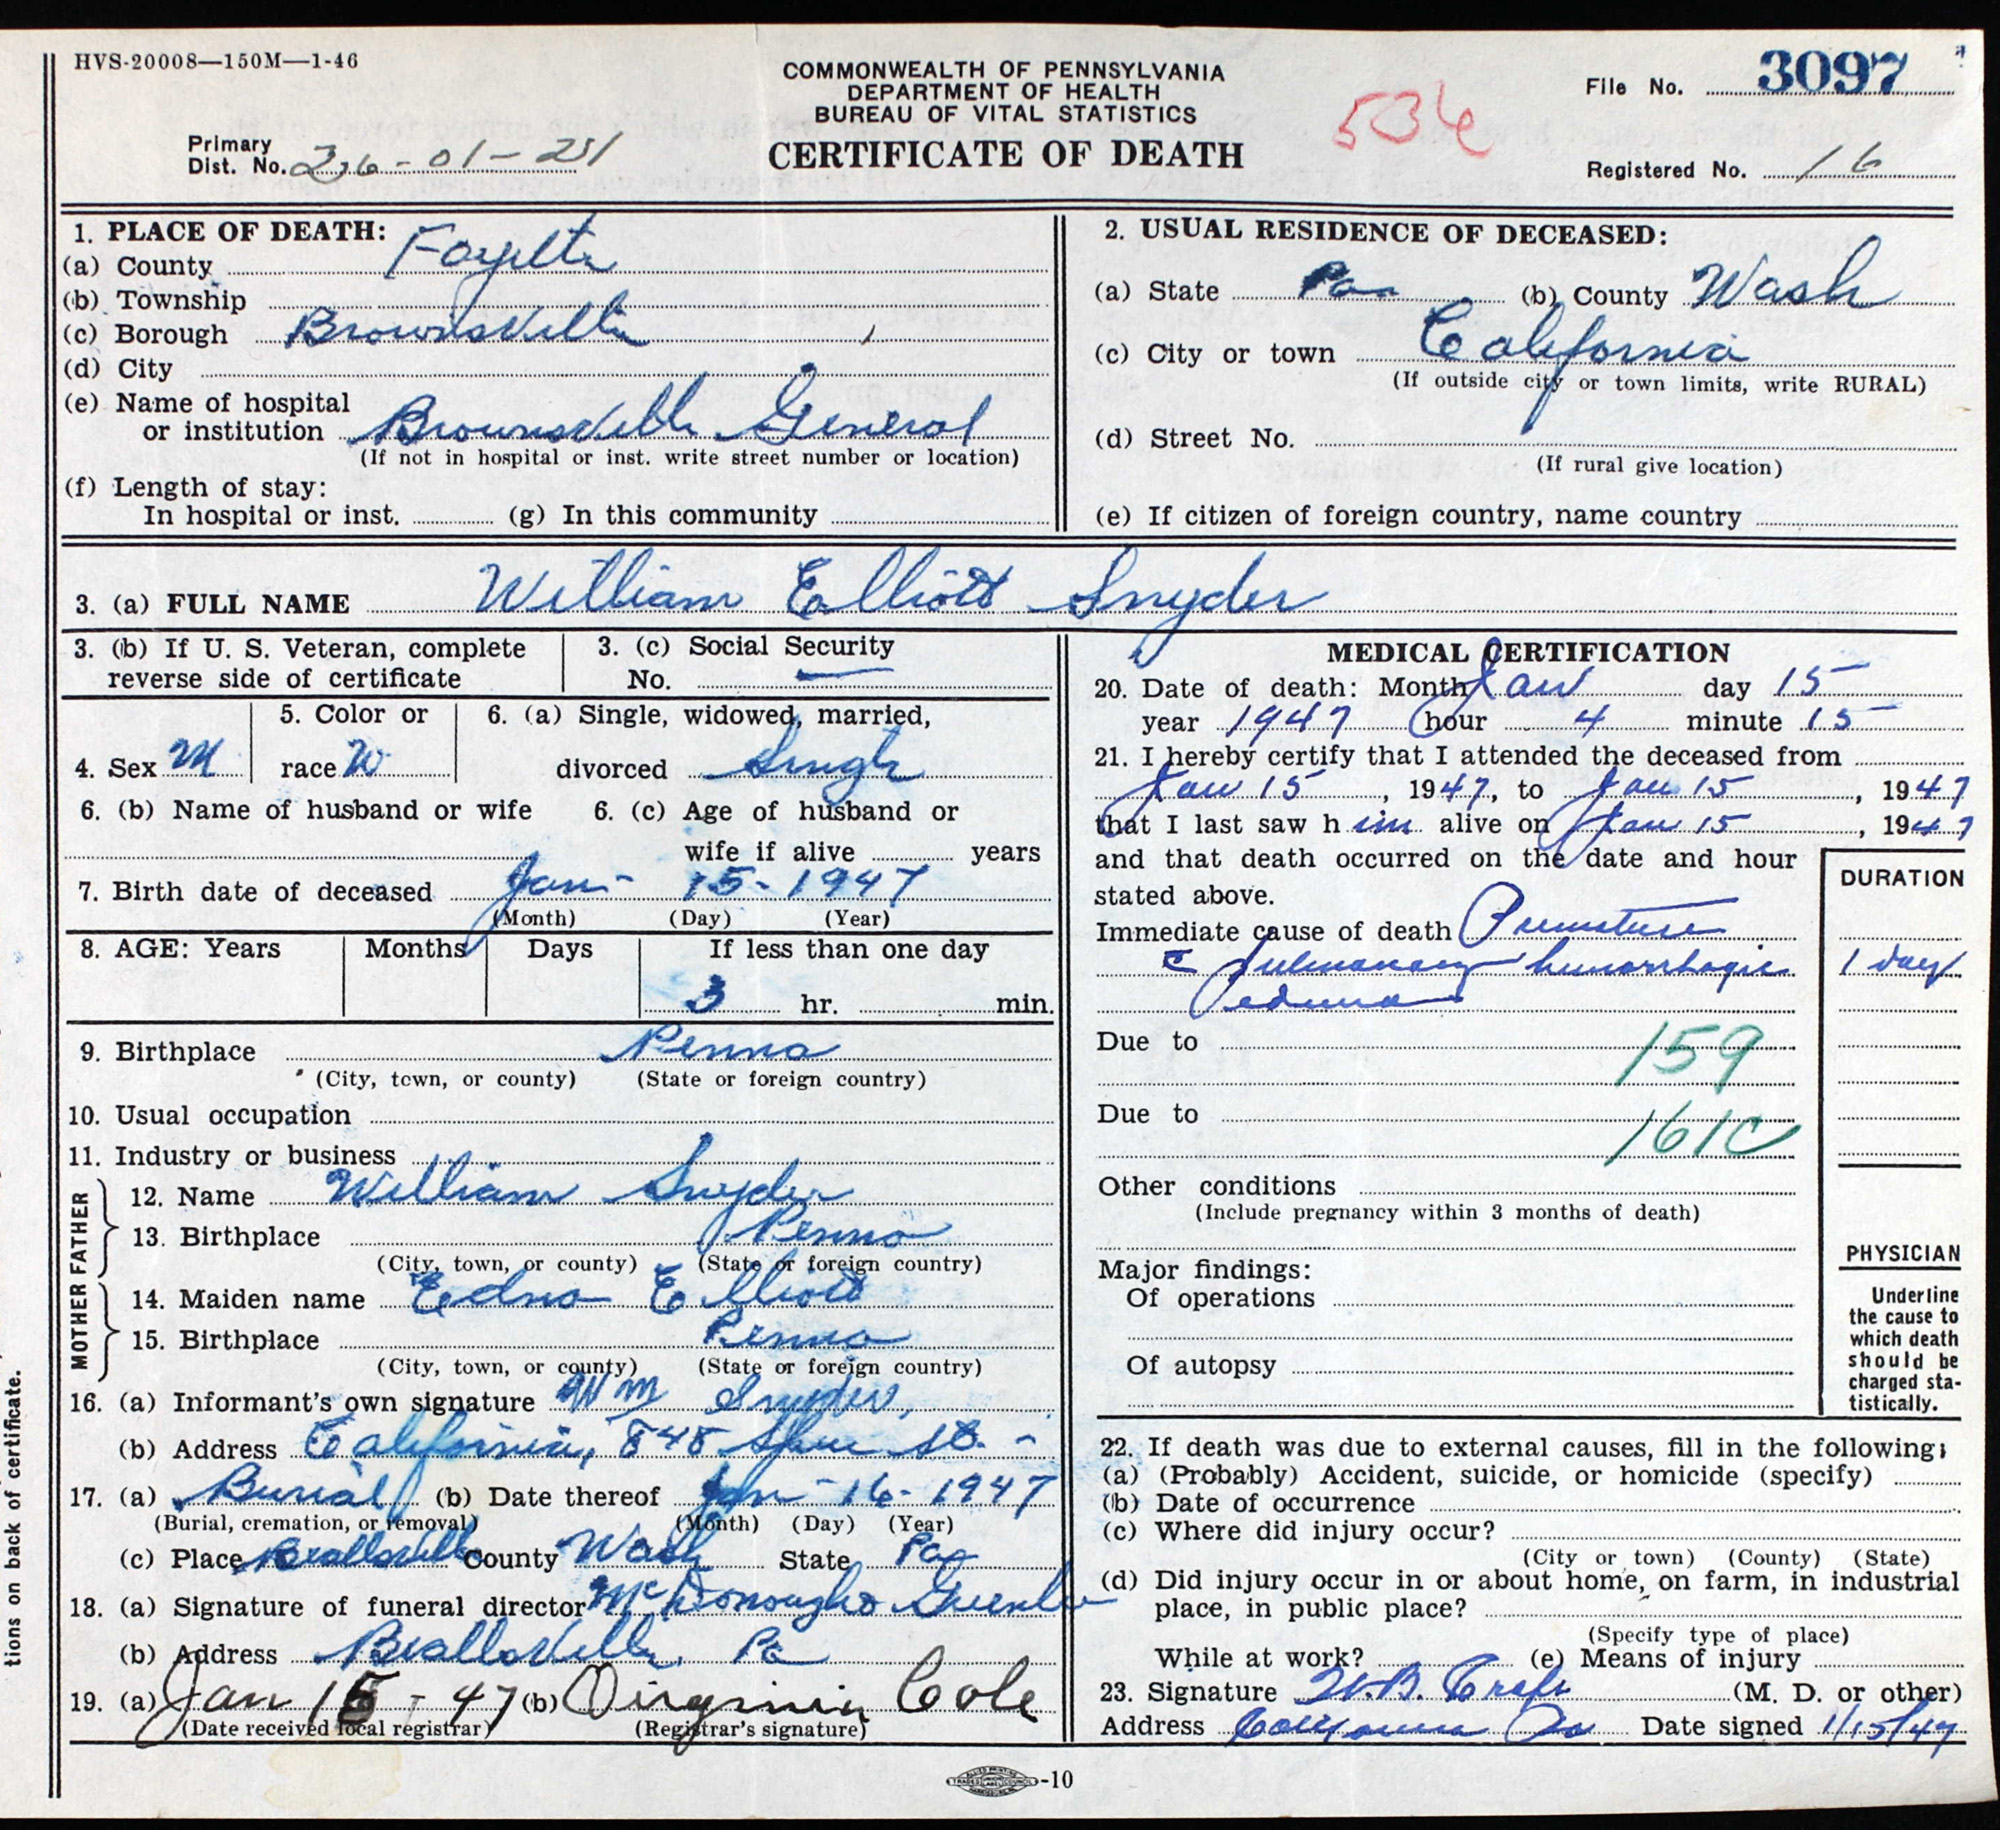 HVS-20008—150M—1-46
COMMONWEALTH OF PENNSYLVANIA
DEPARTMENT OF HEALTH
BUREAU OF VITAL STATISTICS
CERTIFICATE OF DEATH
536
File No. 3097
Primary
Dist. No. 26-01-21
Registered No. 16
1. PLACE OF DEATH:
(a) County Fayette
(b) Township
(c) Borough Brownsville
(d) City
(e) Name of hospital
or institution Brownsville General
(If not in hospital or inst. write street number or location)
(f) Length of stay:
In hospital or inst. (g) In this community
2. USUAL RESIDENCE OF DECEASED:
(a) State Pa (b) County Wash
(c) City or town California
(If outside city or town limits, write RURAL)
(d) Street No.
(If rural give location)
(e) If citizen of foreign country, name country
3. (a) FULL NAME William Elliott Snyder
3. (b) If U. S. Veteran, complete
reverse side of certificate
3. (c) Social Security
No. —
4. Sex M
5. Color or
race W
6. (a) Single, widowed, married,
divorced Single
6. (b) Name of husband or wife
6. (c) Age of husband or
wife if alive years
7. Birth date of deceased Jan - 15 - 1947
(Month) (Day) (Year)
8. AGE: Years Months Days If less than one day
3 hr. min.
9. Birthplace Penna
(City, town, or county) (State or foreign country)
10. Usual occupation
11. Industry or business
FATHER
12. Name William Snyder
13. Birthplace Penna
(City, town, or county) (State or foreign country)
MOTHER
14. Maiden name Edna Elliott
15. Birthplace Penna
(City, town, or county) (State or foreign country)
16. (a) Informant's own signature Wm Snyder,
(b) Address California, 848 St. -
17. (a) Burial (b) Date thereof Jan - 16 - 1947
(Burial, cremation, or removal) (Month) (Day) (Year)
(c) Place Beallsville County Wash State Pa
18. (a) Signature of funeral director McDonough & Greenlee
(b) Address Beallsville, Pa
19. (a) Jan 16 - 47 (b) Virginia Cole
(Date received local registrar) (Registrar's signature)
MEDICAL CERTIFICATION
20. Date of death: Month Jan day 15
year 1947 hour 4 minute 15
21. I hereby certify that I attended the deceased from
Jan 15, 1947, to Jan 15, 1947
that I last saw him alive on Jan 15, 1947
and that death occurred on the date and hour
stated above.
DURATION
Immediate cause of death Premature
c pulmonary hemorrhagic 1 day
edema
Due to 159
Due to 161c
Other conditions
(Include pregnancy within 3 months of death)
Major findings:
Of operations
Of autopsy
PHYSICIAN
Underline
the cause to
which death
should be
charged sta-
tistically.
22. If death was due to external causes, fill in the following:
(a) (Probably) Accident, suicide, or homicide (specify)
(b) Date of occurrence
(c) Where did injury occur?
(City or town) (County) (State)
(d) Did injury occur in or about home, on farm, in industrial
place, in public place?
(Specify type of place)
While at work? (e) Means of injury
23. Signature (M. D. or other)
Address California Pa Date signed 1/15/47
tions on back of certificate.
-10